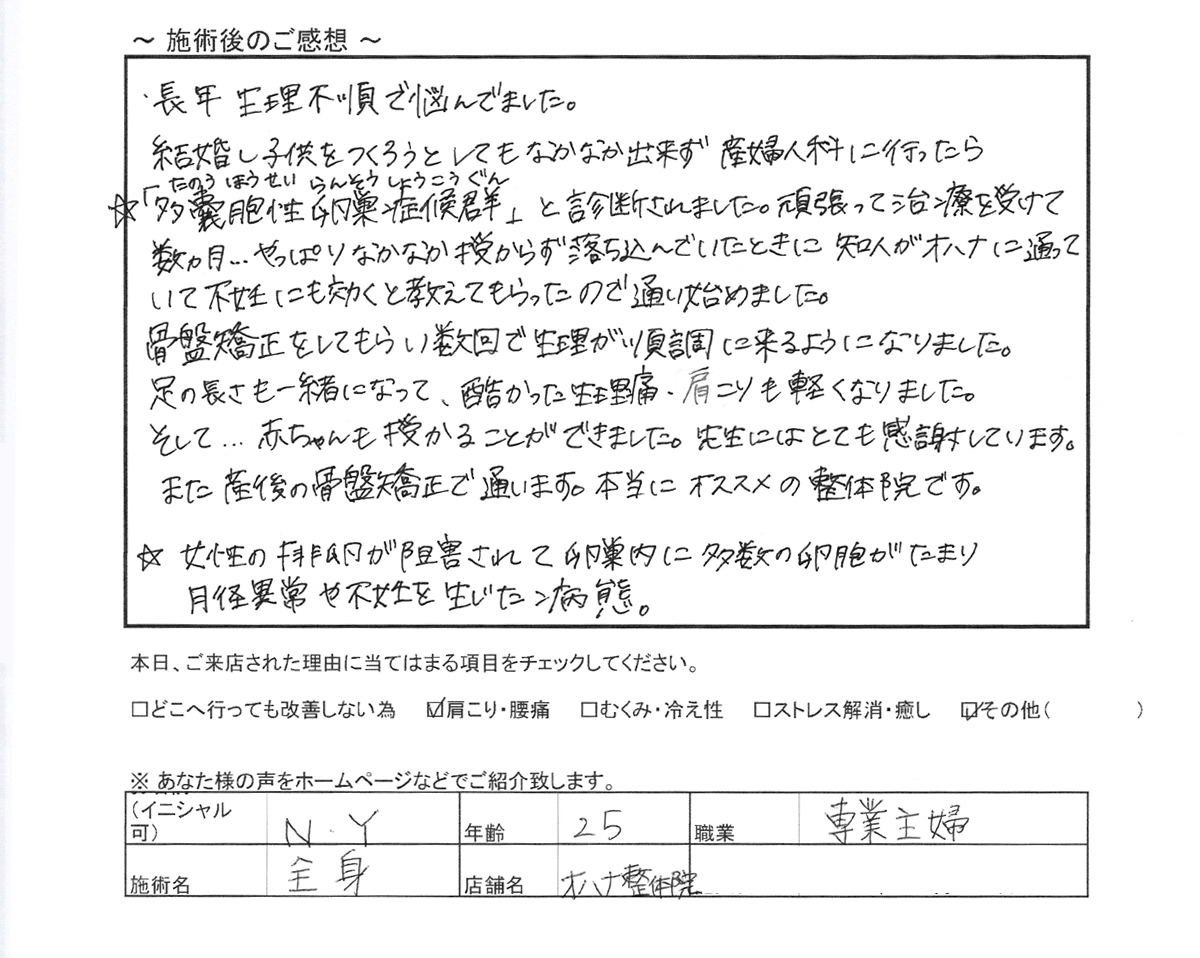 ～ 施術後のご感想 ～
・長年 生理不順で悩んでました。
結婚し子供をつくろうとしてもなかなか出来ず 産婦人科に行ったら
たのう ほうせい らんそう しょうこうぐん
☆「多嚢胞性卵巣症候群」と診断されました。頑張って治療を受けて
数ヵ月…やっぱりなかなか授からず落ち込んでいたときに 知人がオハナに通って
いて不妊にも効くと教えてもらったので通い始めました。
骨盤矯正をしてもらい数回で生理が順調に来るようになりました。
足の長さも一緒になって、酷かった生理痛・肩こりも軽くなりました。
そして…赤ちゃんも授かることができました。先生にはとても感謝しています。
また産後の骨盤矯正で通います。本当にオススメの整体院です。
☆ 女性の排卵が阻害されて卵巣内に多数の卵胞がたまり
月経異常や不妊を生じた病態。
本日、ご来店された理由に当てはまる項目をチェックしてください。
□どこへ行っても改善しない為 ☑肩こり・腰痛 □むくみ・冷え性 □ストレス解消・癒し ☑その他( )
※ あなた様の声をホームページなどでご紹介致します。
(イニシャル可) N.Y 年齢 25 職業 専業主婦
施術名 全身 店舗名 オハナ整体院